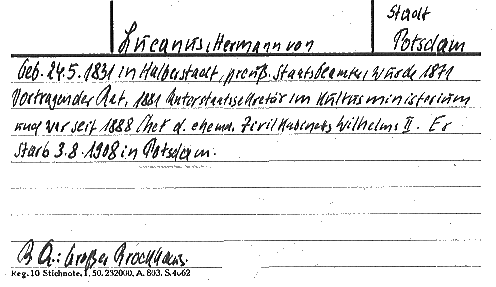 Stadt
Lucanus, Hermann von Potsdam
Geb. 24.5.1831 in Halberstadt, preuß. Staatsbeamter, wurde 1871
Vortragender Rat, 1881 Unterstaatssekretär im Kultusministerium
und war seit 1888 Chef d. ehem. Zivilkabinets Wilhelms II. Er
starb 3.8.1908 in Potsdam.
B A.: Großer Brockhaus.
Reg. 10 Stichnote, I, 50. 232000, A. 803. S. 4062